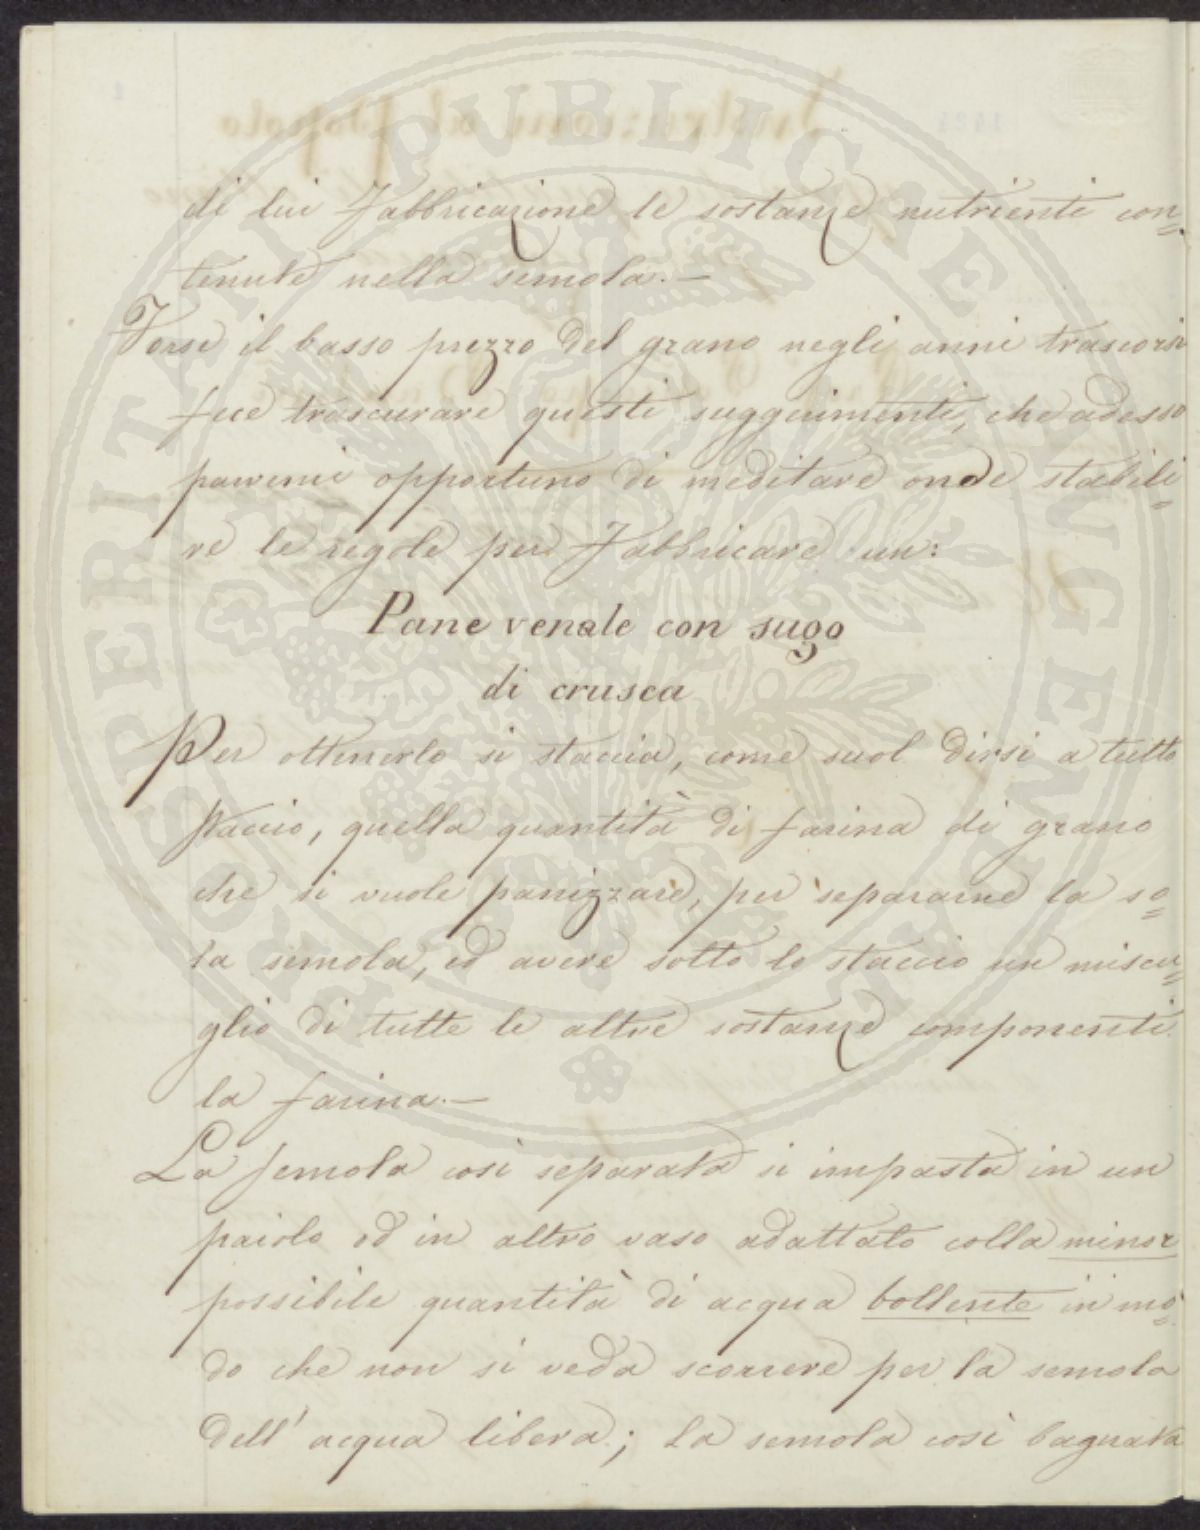 di lui Fabbricazione le sostanze nutrienti con=
tenute nella semola.—
Forse il basso prezzo del grano negli anni trascorsi
fece trascurare questi suggerimenti, che adesso
parvemi opportuno di meditare onde stabili=
re le regole per Fabbricare un:
Pane venale con sugo
di crusca
Per ottenerlo si staccia, come suol dirsi a tutto
staccio, quella quantità di farina di grano
che si vuole panizzare, per separarne la so=
la semola, ed avere sotto lo staccio un miscu=
glio di tutte le altre sostanze componenti
la farina.—
La semola così separata si impasta in un
paiolo od in altro vaso adattato colla minor
possibile quantità di acqua bollente in mo=
do che non si veda scorrere per la semola
dell'acqua libera; la semola così bagnata
PROSPERITATI PUBLICAE AUGENDAE